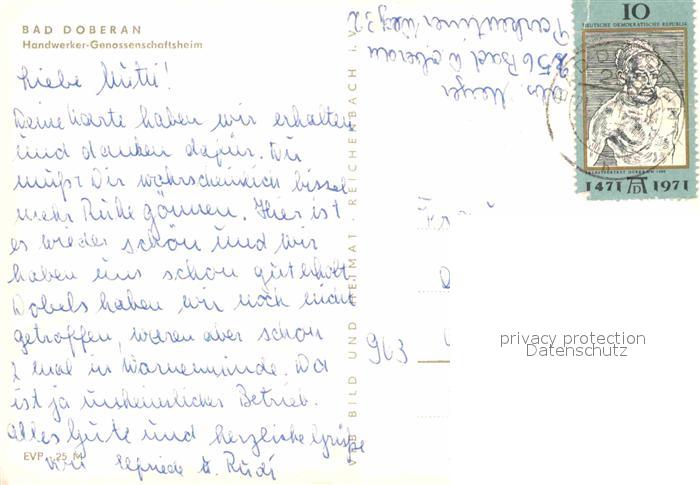 BAD DOBERAN
Handwerker-Genossenschaftsheim
Liebe Mutti!
Deine Karte haben wir erhalten
und danken dafür. Du
mußt Dir wahrscheinlich bissel
mehr Ruhe gönnen. Hier ist
es wieder schön und wir
haben uns schon gut erholt.
Dobels haben wir noch nicht
getroffen, waren aber schon
2 mal in Warnemünde. Da
ist ja unheimlicher Betrieb.
Alles Gute und herzliche Grüße
von Elfriede u. Rudi
EVP - 25 M
VEB BILD UND HEIMAT · REICHENBACH I. V.
Meyer
256 Bad Doberan
Parkentiner Weg 32
10
DEUTSCHE DEMOKRATISCHE REPUBLIK
1471 AD 1971
963
privacy protection
Datenschutz